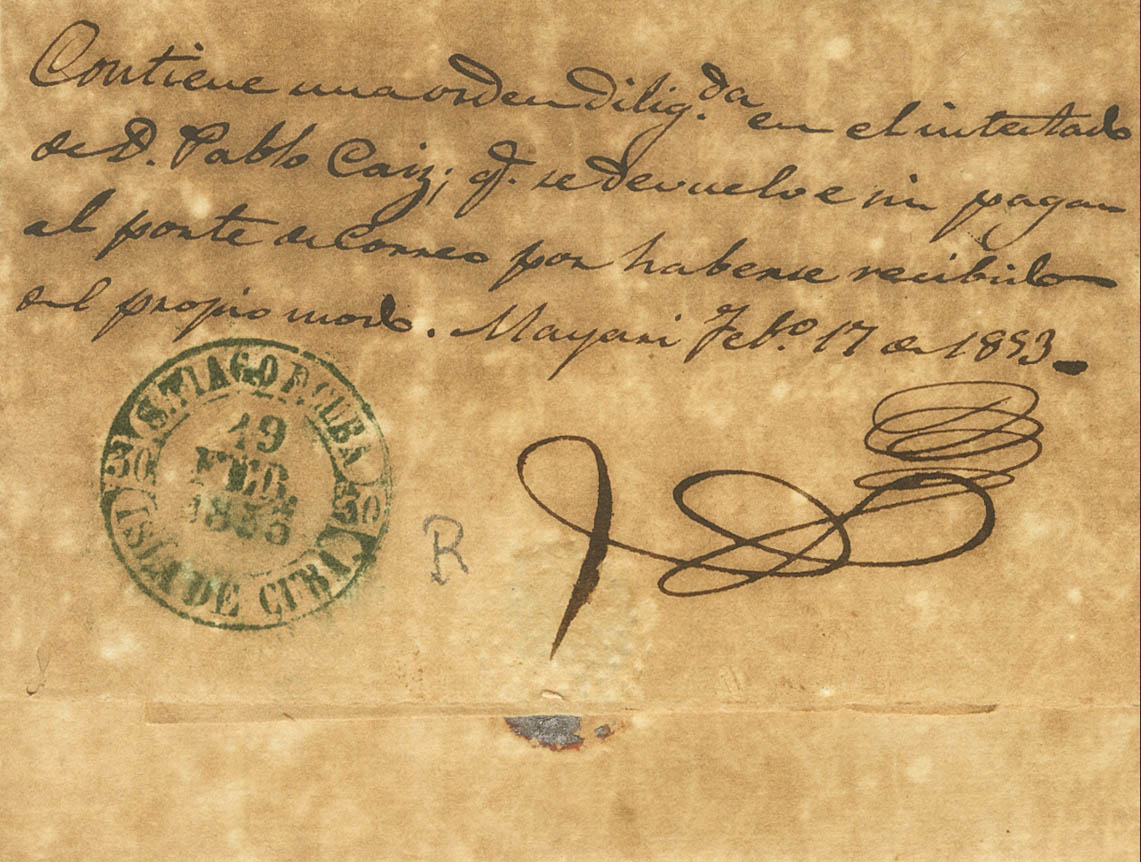 Contiene una orden dilig.da en el intestado
de D. Pablo Caiz; q.e se devuelve sin pagar
el porte de Correo por haberse recibido
del propio modo. Mayari Feb.o 17 de 1853.
S.TIAGO D. CUBA
19
FEB.
1853
ISLA DE CUBA.
R